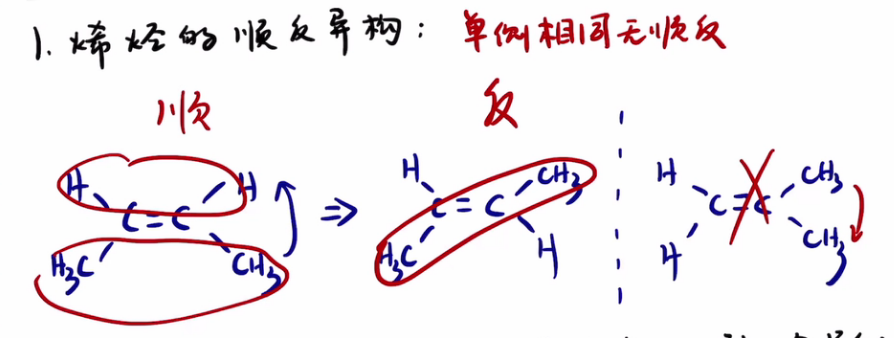 1. 烯烃的顺反异构：单侧相同无顺反
顺 反
H H H CH₃ H CH₃
C=C ⇒ C=C C=C
H₃C CH₃ H₃C H H CH₃